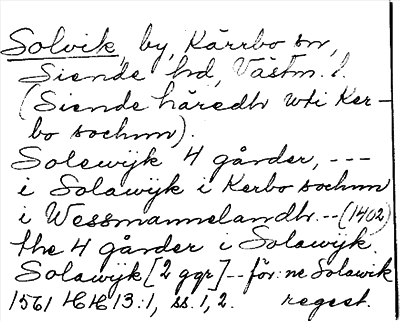 Solvik, by, Kärrbo sn,
Siende hd, Västm. l.
(Siende häredh uti Ker-
bo sochnn).
Solewijk 4 gårder, ---
i Solawijk i Kerbo sochnn
i Wessmannelandh --(1402)
the 4 gårder i Solawijk,
Solawijk [2 ggr] -- för: ne Solawik
1561 HH 13:1, ss. 1, 2. regest.